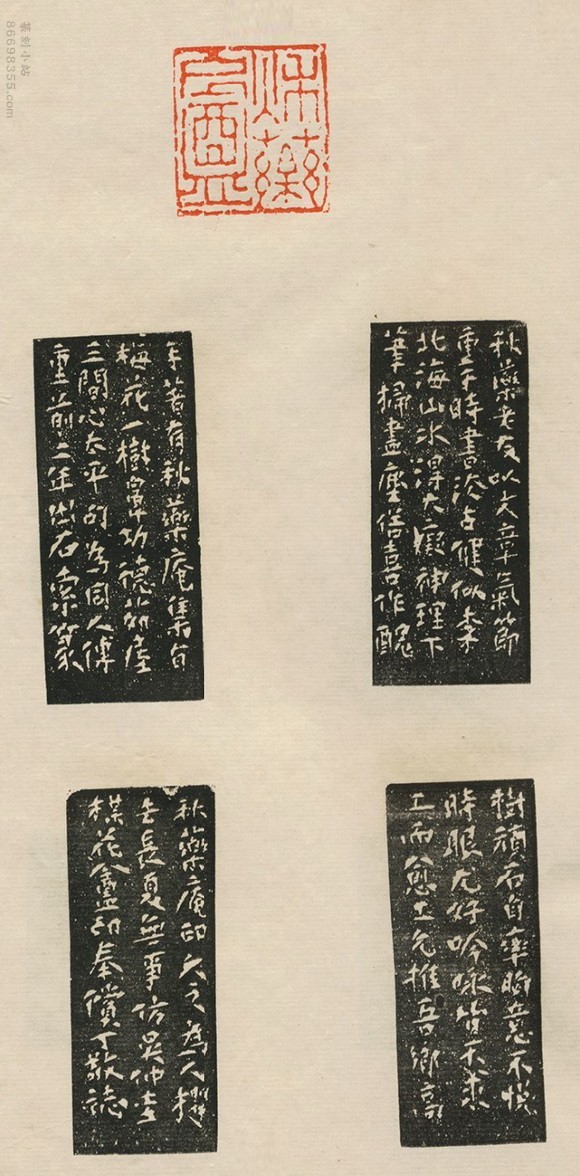 秋藥盦
秋藥老友以文章氣節
重于時書法古健似李
北海山水得大癡神理下
筆掃盡塵俗喜作醜
樹頑石自率胸意不悅
時眼尤好吟咏皆不求
工而愈工允推吾鄉高
士著有秋藥庵集有
梅花一樹鼻功德茆屋
三間心太平的為同人傳
重前二年出石索篆
秋藥庵印久之為人攫
去長夏無事仿吳仲圭
楳花盦印奉償丁敬誌
篆刻小站
86698355.com